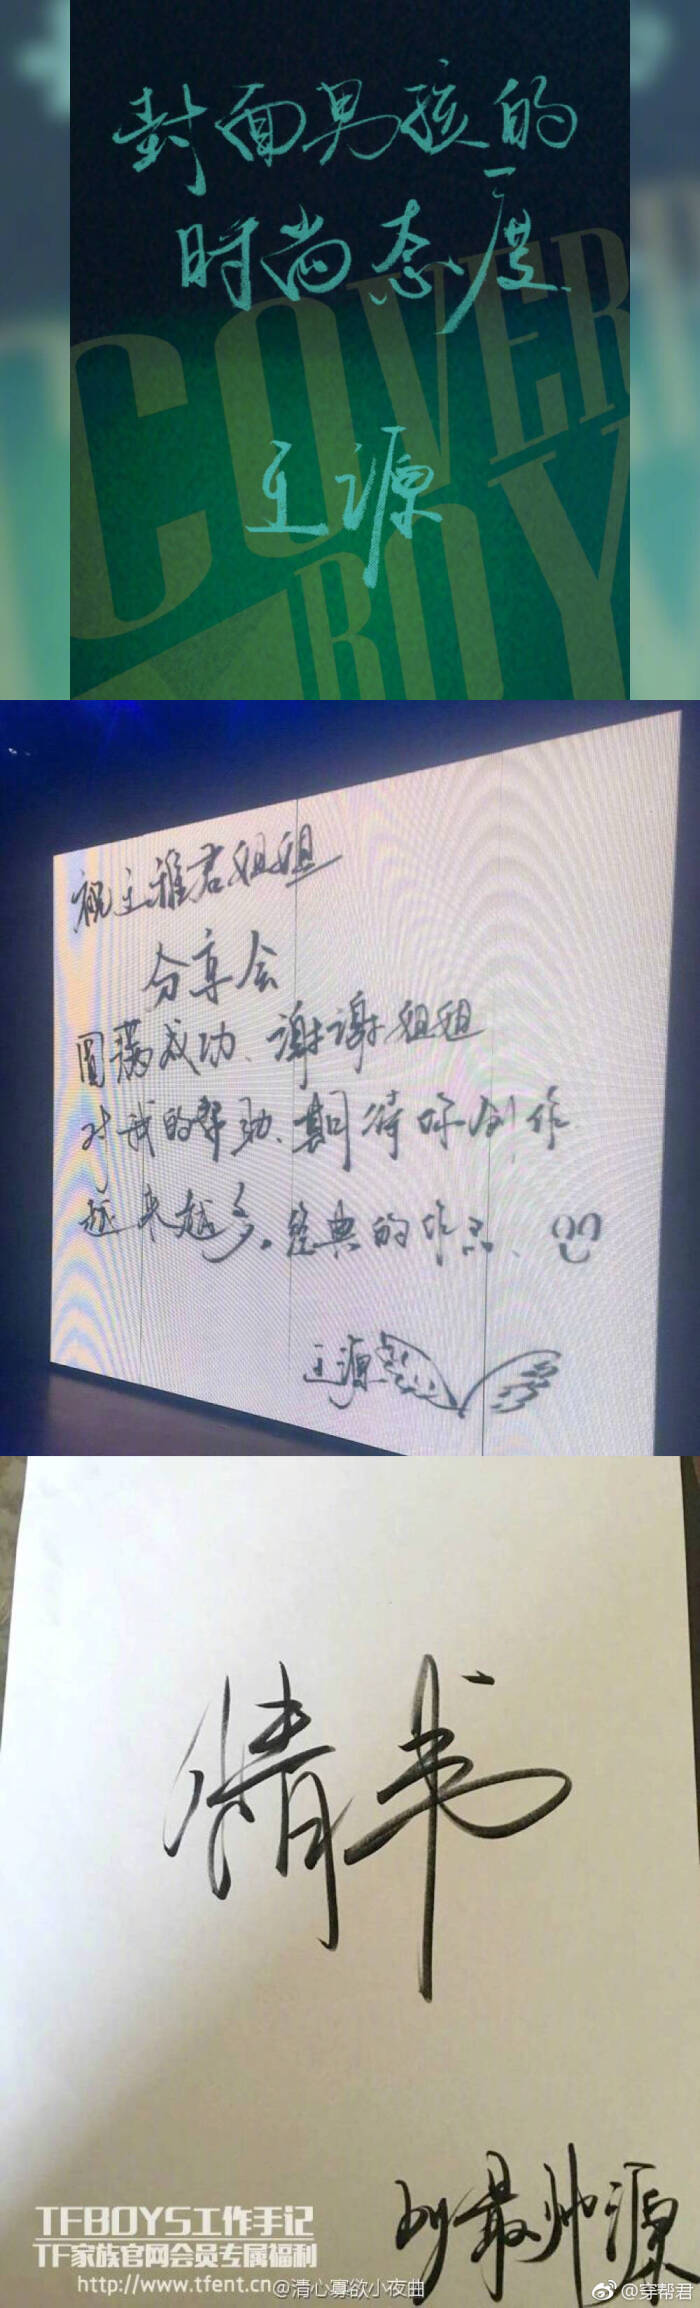 封面男孩的
时尚态度
COVER
BOY
王源
祝王雅君姐姐
分享会
圆满成功、谢谢姐姐
对我的帮助、期待你创作
越来越多经典的作品、
王源
情书
by最帅源
TFBOYS工作手记
TF家族官网会员专属福利
http://www.tfent.cn
@清心寡欲小夜曲
@穿帮君